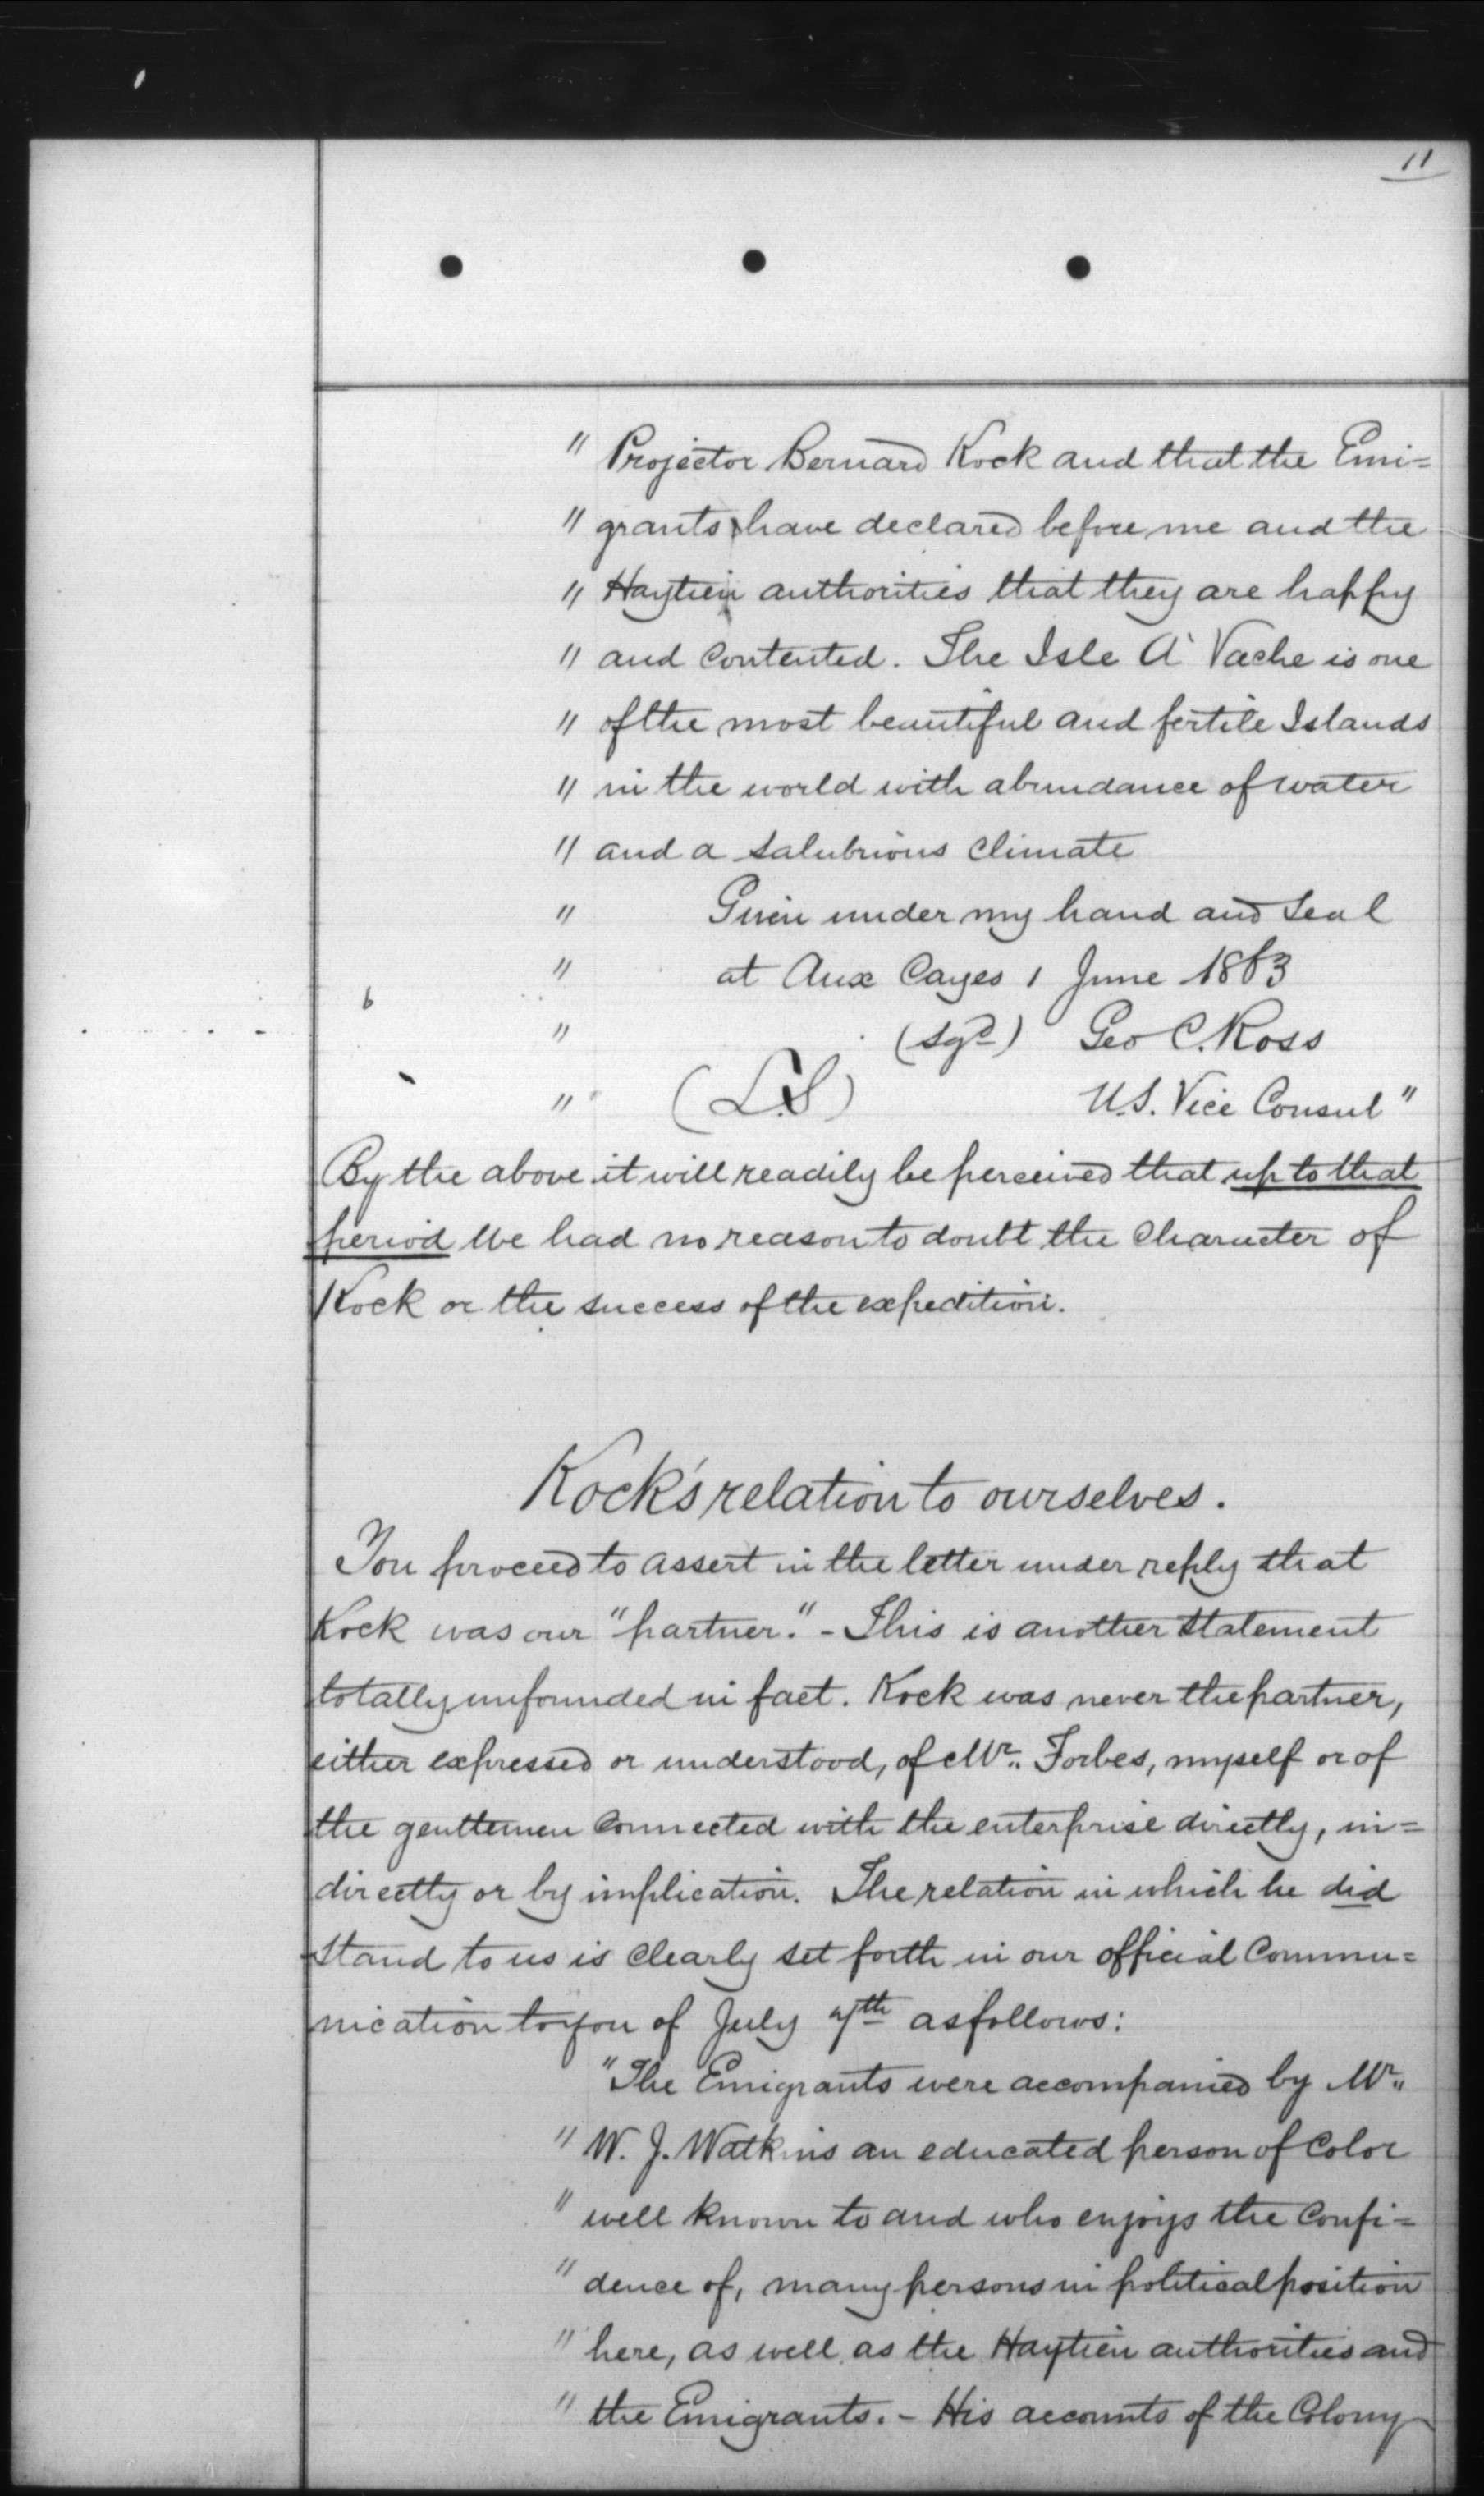 11
" Projector Bernard Kock and that the Emi=
" grants have declared before me and the
" Haytien authorities that they are happy
" and contented. The Isle A' Vache is one
" of the most beautiful and fertile Islands
" in the world with abundance of water
" and a salubrious climate
" Given under my hand and seal
" at Aux Cayes 1 June 1863
" (sgd) Geo C. Ross
" (L.S) U.S. Vice Consul"
By the above it will readily be perceived that up to that
period we had no reason to doubt the character of
Kock or the success of the expedition.
Kock's relation to ourselves.
You proceed to assert in the letter under reply that
Kock was our "partner." - This is another statement
totally unfounded in fact. Kock was never the partner,
either expressed or understood, of Mr. Forbes, myself or of
the gentlemen connected with the enterprise directly, in=
directly or by implication. The relation in which he did
stand to us is clearly set forth in our official Commu=
nication to you of July 7th as follows:
"The Emigrants were accompanied by Mr.
" W. J. Watkins an educated person of Color
" well known to and who enjoys the Confi=
" dence of, many persons in political position
" here, as well as the Haytien authorities and
" the Emigrants. - His accounts of the Colony